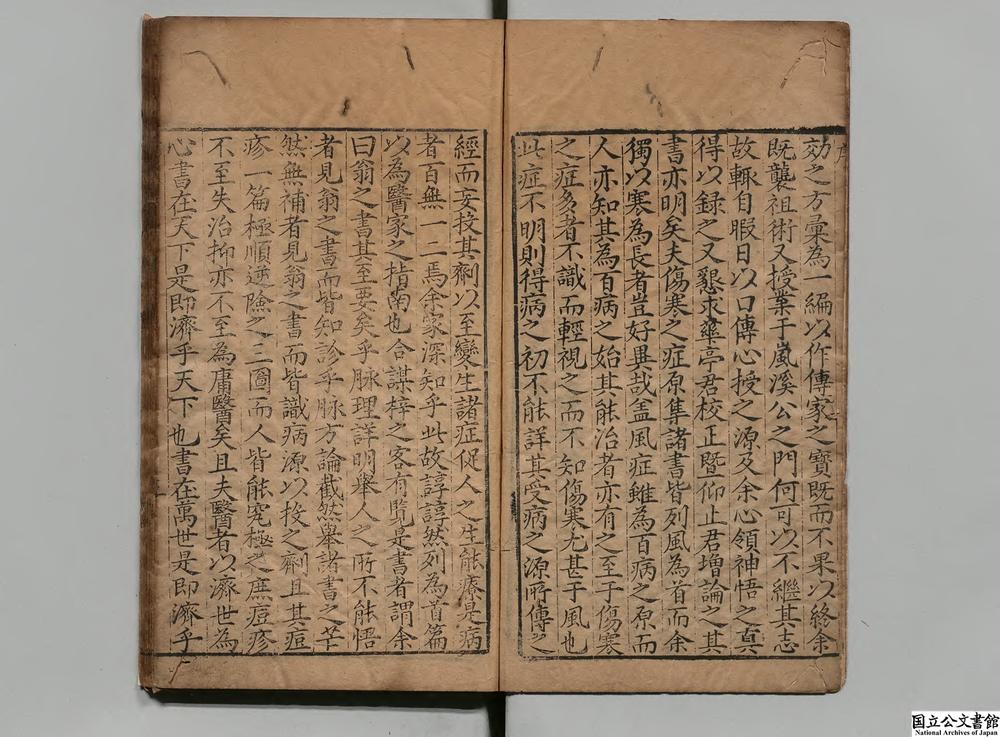 効之方彙為一編以作傳家之寶既而不果以終余
既襲祖術又授業于嵐溪公之門何可以不繼其志
故輒自暇日以口傳心授之源及余心領神悟之真
得以録之又懇求藥亭君校正暨仰止君増論之其
書亦明矣夫傷寒之症原集諸書皆列風為首而余
獨以寒為長者豈好異哉盖風症雖為百病之原而
人亦知其為百病之始其能治者亦有之至于傷寒
之症多者不識而輕視之而不知傷寒尤甚于風也
此症不明則得病之初不能詳其受病之源所傳之
經而妄投其劑以至變生諸症促人之生能療是病
者百無一二焉余家深知乎此故諄諄然列為首篇
以為醫家之指南也合謀梓之客有覧是書者謂余
曰翁之書其至要矣乎脉理詳明舉人之所不能悟
者見翁之書而皆知診乎脉方論截然舉諸書之茫
然無補者見翁之書而皆識病源以投之劑且其痘
疹一篇極順逆險之三圖而人皆能究極之庶痘疹
不至失治抑亦不至為庸醫矣且夫醫者以濟世為
心書在天下是即濟乎天下也書在萬世是即濟乎
国立公文書館
National Archives of Japan